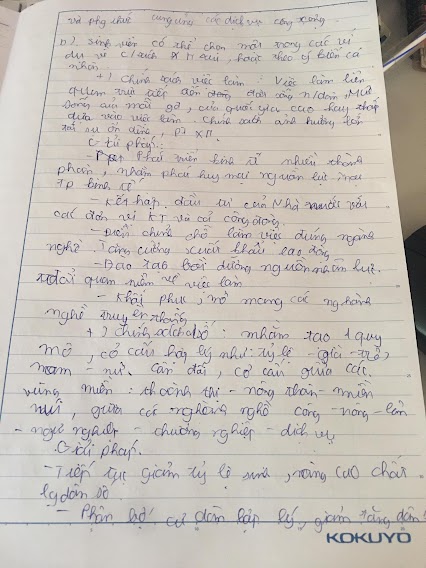 và phg thức cung ứng các dịch vụ công cộng.
b). sinh viên có thể chọn một trong các ví
dụ về c/sách XH sau, hoặc theo ý kiến cá
nhân
+) Chính sách việc làm: Việc làm liên
quan trực tiếp đến đời sống n/dân, Mức
sống của mỗi gđ, của quốc gia cao hay thấp
dựa vào việc làm. Chính sách ảnh hưởng tới
sự ổn định, pt XH.
G/pháp:
- Phát triển kinh tế nhiều thành
phần, nhằm phát huy mọi nguồn lực
tp kinh tế
- Kết hợp đầu tư của Nhà nước với
các đơn vị KT và cả cộng đồng
- Điều chỉnh chỗ làm việc đúng ngành
nghề. Tăng cường xuất khẩu lao động
- Đào tạo bồi dưỡng nguồn nhân lực.
quan niệm về việc làm
- Khôi phục, mở mang các nghành
nghề truyền thống
+) Chính sách dsố: nhằm tạo 1 quy
mô, cơ cấu hợp lý như: tỷ lệ - già - trẻ,
nam - nữ. Cân đối, cơ cấu giữa các
vùng miền: thành thị - nông thôn - miền
núi, giữa các nghành nghề công - nông - lâm
- ngư nghiệp - thương nghiệp - dịch vụ
Giải pháp.
- Tiếp tục giảm tỷ lệ sinh, nâng cao chất
lg dân số
- Phân bố cư dân hợp lý, giảm tăng dân
KOKUYO